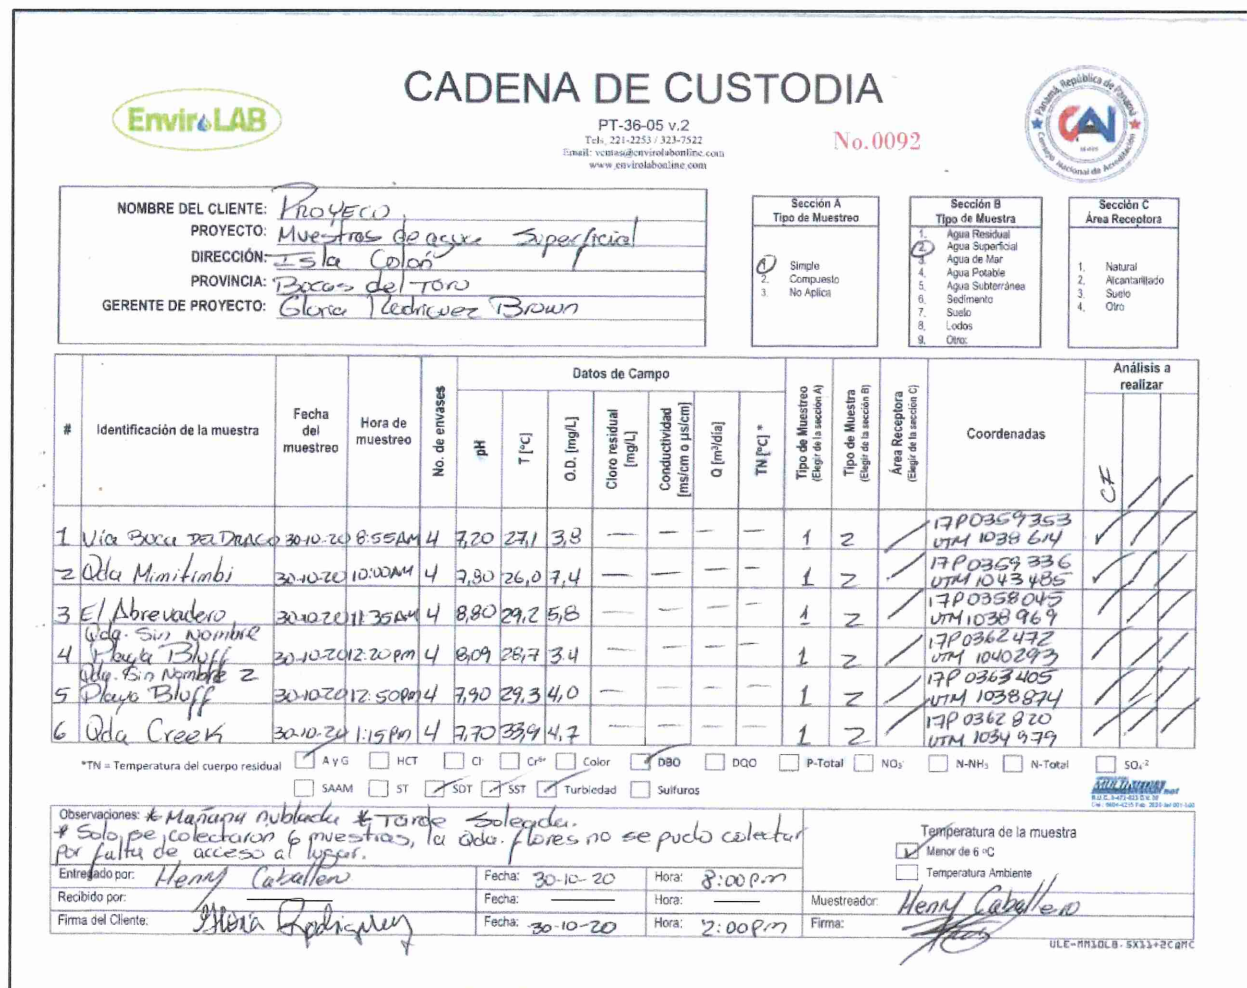 CADENA DE CUSTODIA
EnviroLAB
PT-36-05 v.2
Tels. 221-2253 / 323-7522
Email: ventas@envirolabonline.com
www.envirolabonline.com
No.0092
República de Panamá
CNA
Consejo Nacional de Acreditación
NOMBRE DEL CLIENTE: PROYECO
PROYECTO: Muestras de agua Superficial
DIRECCIÓN: Isla Colón
PROVINCIA: Bocas del Toro
GERENTE DE PROYECTO: Gloria Rodriguez Brown
Sección A
Tipo de Muestreo
1. Simple
2. Compuesto
3. No Aplica
Sección B
Tipo de Muestra
1. Agua Residual
2. Agua Superficial
3. Agua de Mar
4. Agua Potable
5. Agua Subterránea
6. Sedimento
7. Suelo
8. Lodos
9. Otro:
Sección C
Área Receptora
1. Natural
2. Alcantarillado
3. Suelo
4. Otro
# Identificación de la muestra Fecha del muestreo Hora de muestreo No. de envases Datos de Campo pH T [°C] O.D. [mg/L] Cloro residual [mg/L] Conductividad [ms/cm o µs/cm] Q [m³/día] TN [°C] * Tipo de Muestreo (Elegir de la sección A) Tipo de Muestra (Elegir de la sección B) Área Receptora (Elegir de la sección C) Coordenadas Análisis a realizar
CF
1 Vía Boca DEL DRAGO 30-10-20 8:55AM 4 7,20 27,1 3,8 — — — — 1 2 17P0359353 UTM 1038614
2 Qda Mimitimbi 30-10-20 10:00AM 4 7,80 26,0 7,4 — — — — 1 2 17P0359336 UTM 1043485
3 El Abrevadero 30-10-20 11:35AM 4 8,80 29,2 5,8 — — — — 1 2 17P0358045 UTM 1038969
4 Qda. Sin Nombre Playa Bluff 30-10-20 12:20pm 4 8,09 28,7 3.4 — — — — 1 2 17P0362472 UTM 1040293
5 Qda. Sin Nombre 2 Playa Bluff 30-10-20 12:50pm 4 7,90 29,3 4,0 — — — — 1 2 17P 0363405 UTM 1038874
6 Qda Creek 30-10-20 1:15Pm 4 7,70 33,9 4,7 — — — — 1 2 17P 0362820 UTM 1034979
*TN = Temperatura del cuerpo residual A y G HCT Cl Cr⁶⁺ Color DBO DQO P-Total NO₃ N-NH₃ N-Total SO₄⁻²
SAAM ST SDT SST Turbiedad Sulfuros
Observaciones: * Mañana nublada * Tarde Soleada.
* Solo se colectaron 6 muestras, la Qda. flores no se pudo colectar
por falta de acceso al lugar.
Temperatura de la muestra
Menor de 6 °C
Temperatura Ambiente
Entregado por: Henry Caballero Fecha: 30-10-20 Hora: 8:00 p.m
Recibido por: Fecha: Hora:
Muestreador: Henry Caballero
Firma del Cliente: Gloria Rodriguez Fecha: 30-10-20 Hora: 2:00 p.m
Firma:
ULE-MM1OL8-SX11+2CQMC